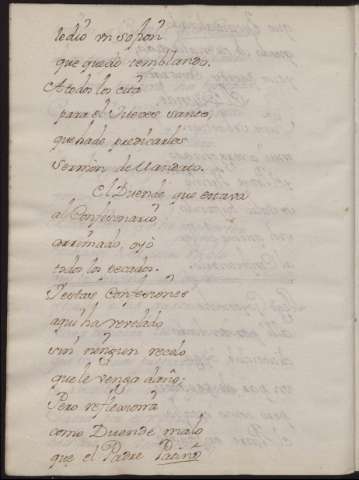 le dió un sofion
que quedo temblando.
A todos los citó
para el Jueves santo
que hade predicarlos
sermon de Mandato.
El Duende que estava
al Confesonario
arrimado, oyò
todos los pecados.
Y estas Confesiones
aqui ha revelado
sin ningun recelo
que le venga daño;
Pero reflexiona
como Duende malo
que el Padre Patiño